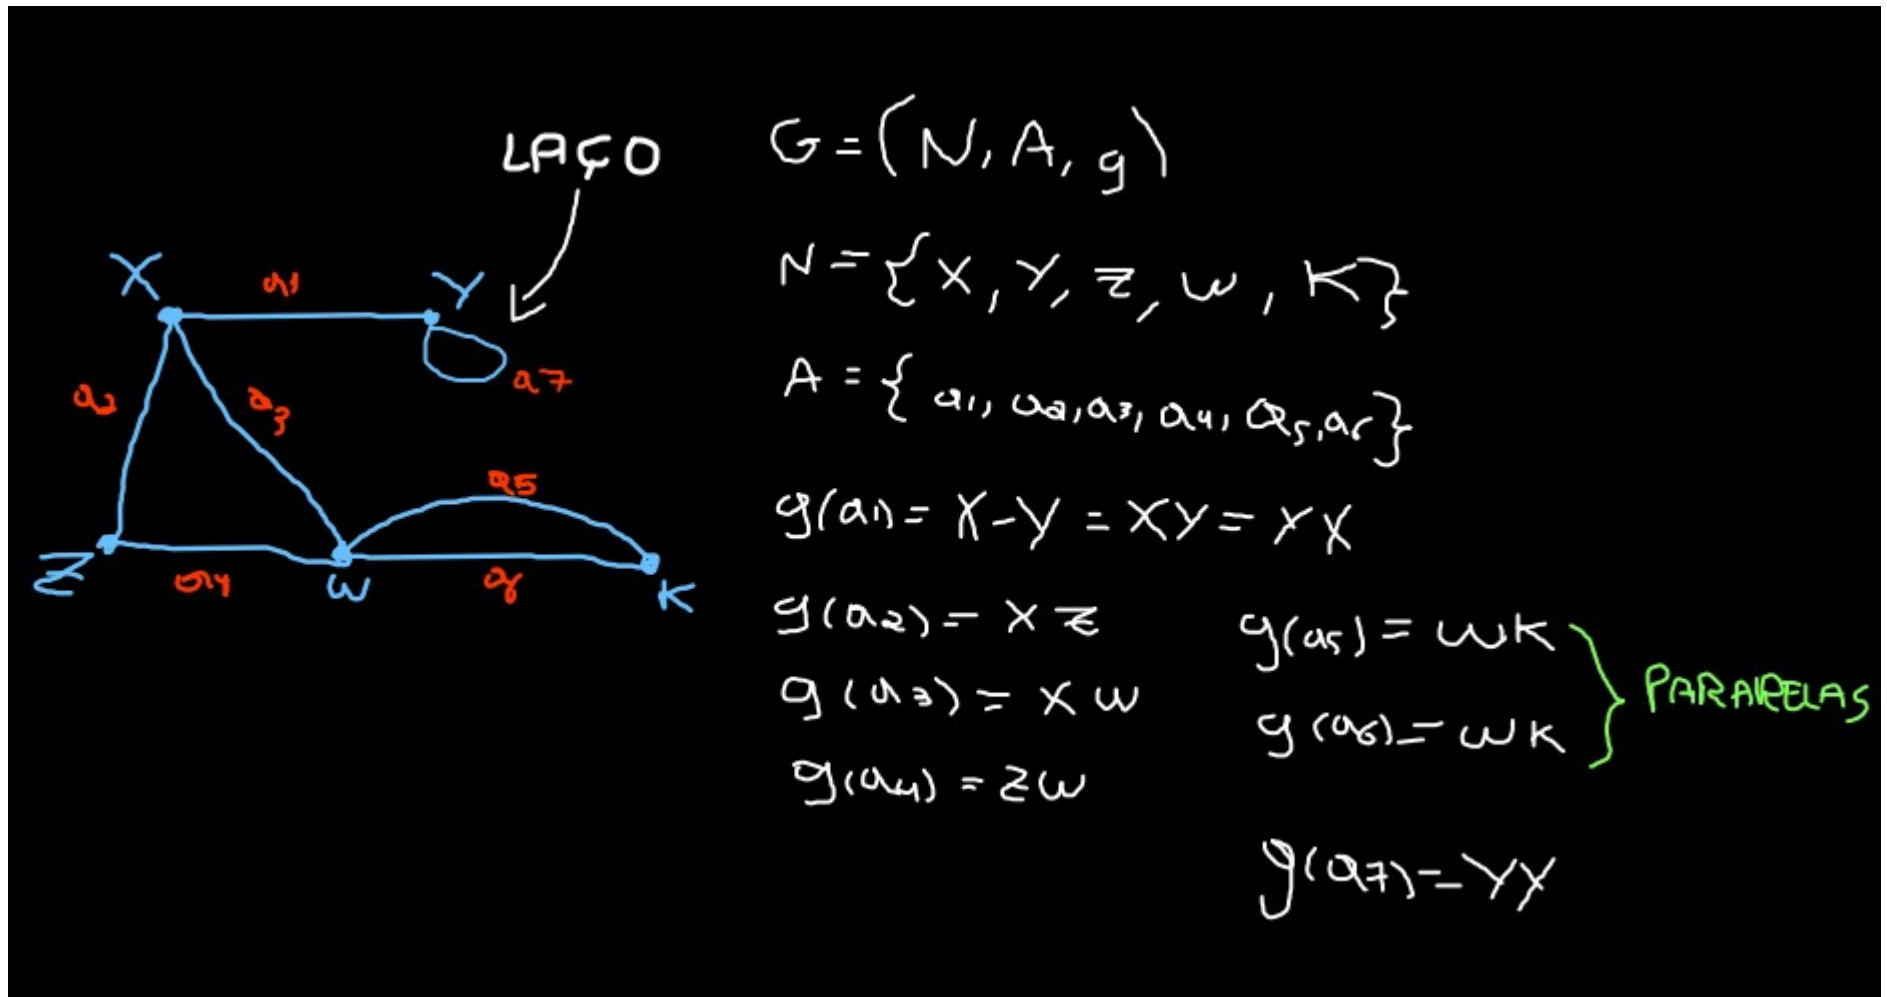 LAÇO
X
a1
Y
a7
a2
a3
a5
Z
a4
W
a6
K
G = (N, A, g)
N = {X, Y, Z, W, K}
A = {a1, a2, a3, a4, a5, a6}
g(a1) = X-Y = XY = YX
g(a2) = XZ
g(a3) = XW
g(a4) = ZW
g(a5) = WK
g(a6) = WK
PARARELAS
g(a7) = YY